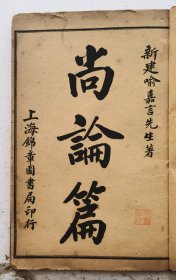 新建喻嘉言先生著
尚論篇
上海錦章圖書局印行